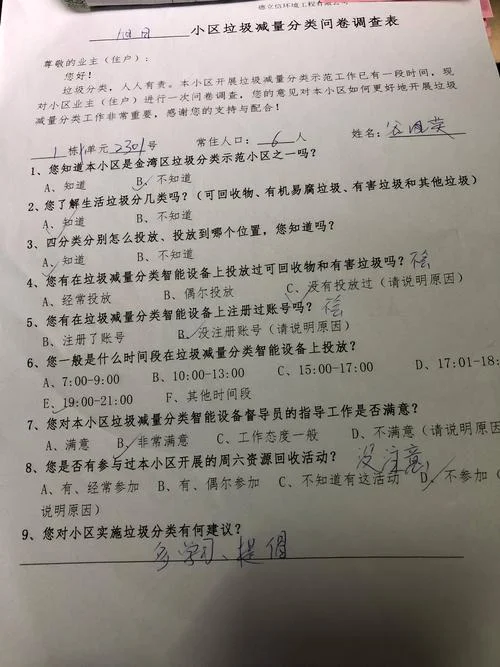 德立信环境工程有限公司
小区垃圾减量分类问卷调查表
尊敬的业主(住户):
您好!
垃圾分类,人人有责。本小区开展垃圾减量分类示范工作已有一段时间,现
对小区业主(住户)进行一次问卷调查,您的意见对本小区如何更好地开展垃圾
减量分类工作非常重要,感谢您的支持与配合!
1 栋 1 单元 2301 号 常住人口: 6 人 姓名:
1、您知道本小区是金湾区垃圾分类示范小区之一吗?
A、知道 B、不知道
2、您了解生活垃圾分几类吗?(可回收物、有机易腐垃圾、有害垃圾和其他垃圾)
A、知道 B、不知道
3、四分类分别怎么投放、投放到哪个位置,您知道吗?
A、知道 B、不知道
4、您有在垃圾减量分类智能设备上投放过可回收物和有害垃圾吗?
A、经常投放 B、偶尔投放 C、没有投放过(请说明原因)
5、您有在垃圾减量分类智能设备上注册过账号吗?
B、注册了账号 B、没注册账号(请说明原因)
6、您一般是什么时间段在垃圾减量分类智能设备上投放?
A、7:00-9:00 B、10:00-13:00 C、15:00-17:00 D、17:01-18:
E、19:00-21:00 F、其他时间段
7、您对本小区垃圾减量分类智能设备督导员的指导工作是否满意?
A、满意 B、非常满意 C、工作态度一般 D、不满意(请说明原因)
8、您是否有参与过本小区开展的周六资源回收活动? 没注意
A、有、经常参加 B、有、偶尔参加 C、不知道有这活动 D、不参加(
说明原因)
9、您对小区实施垃圾分类有何建议?
多学习、提倡